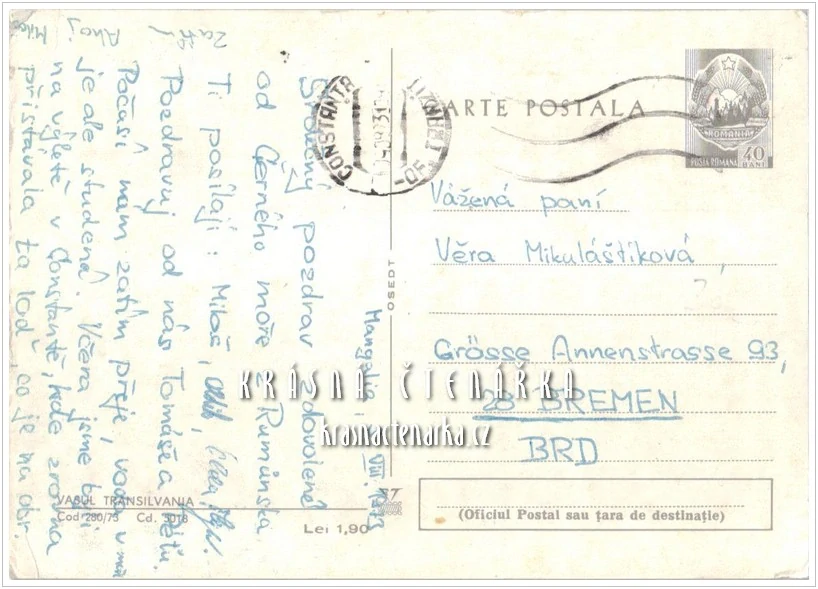 CARTE POSTALA
POSTA ROMANA
ROMANIA
40
BANI
CONSTANTA
Mangalia VIII. 1973
Srdečný pozdrav z dovolené
od Černého moře z Rumunska
Ti posílají: Miloš,
Pozdravuj od nás Tomáše a Péťu.
Počasí nám zatím přeje, voda v moři
je ale studená. Včera jsme byli
na výletě v Constantě, kde zrovna
přistávala ta loď, co je na obr.
Zatím
Ahoj
Vážená paní
Věra Mikuláštíková,
Grösse Annenstrasse 93,
28 BREMEN
BRD
OSEDT
VASUL TRANSILVANIA
Cod 280/73 Cd. 3018
Lei 1,90
(Oficiul Postal sau țara de destinație)
KRÁSNÁ ČTENÁŘKA
krasnactenarka.cz